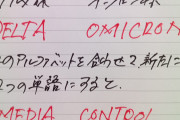 DELTA OMICRON
のアルファベットを合わせ、新たに
2つの単語にすると、
MEDIA CONTOOL